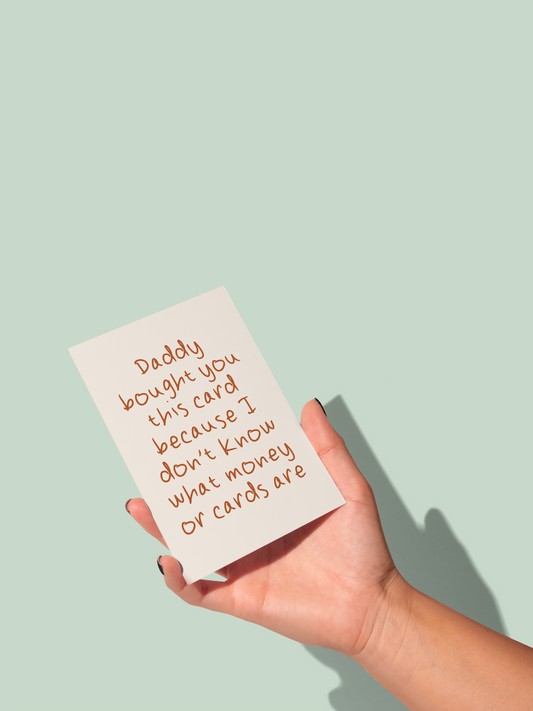 Daddy
bought you
this card
because I
don't know
what money
or cards are